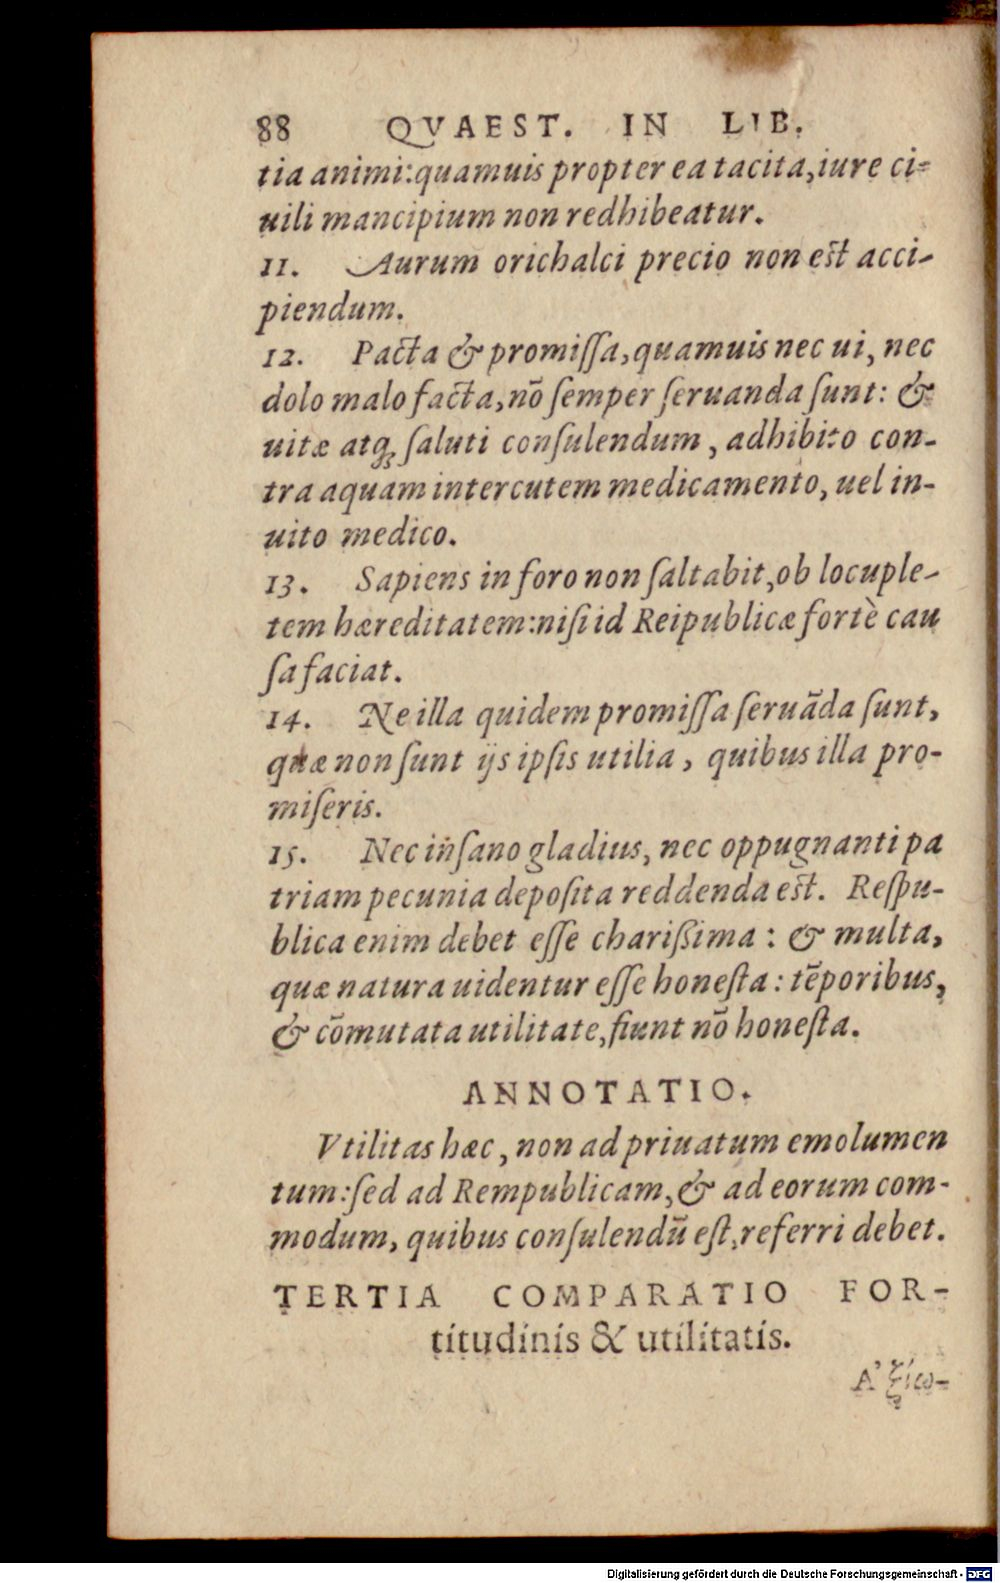 88 QVAEST. IN LIB.
tia animi: quamuis propter ea tacita, iure ci=
uili mancipium non redhibeatur.
11. Aurum orichalci precio non est acci-
piendum.
12. Pacta & promiſſa, quamuis nec ui, nec
dolo malo facta, nō ſemper ſeruanda ſunt: &
uitæ atq; ſaluti conſulendum, adhibito con-
tra aquam intercutem medicamento, uel in-
uito medico.
13. Sapiens in foro non ſaltabit, ob locuple-
tem hæreditatem: niſi id Reipublicæ fortè cau
ſa faciat.
14. Ne illa quidem promiſſa ſeruāda ſunt,
quæ non ſunt ijs ipſis utilia, quibus illa pro-
miſeris.
15. Nec inſano gladius, nec oppugnanti pa
triam pecunia depoſita reddenda est. Reſpu-
blica enim debet eſſe charißima: & multa,
quæ natura uidentur eſſe honeſta: tēporibus,
& cōmutata utilitate, fiunt nō honeſta.
ANNOTATIO.
Vtilitas hæc, non ad priuatum emolumen
tum: ſed ad Rempublicam, & ad eorum com-
modum, quibus conſulendū eſt, referri debet.
TERTIA COMPARATIO FOR-
titudinis & utilitatis.
Ἀξίω-
Digitalisierung gefördert durch die Deutsche Forschungsgemeinschaft - DFG